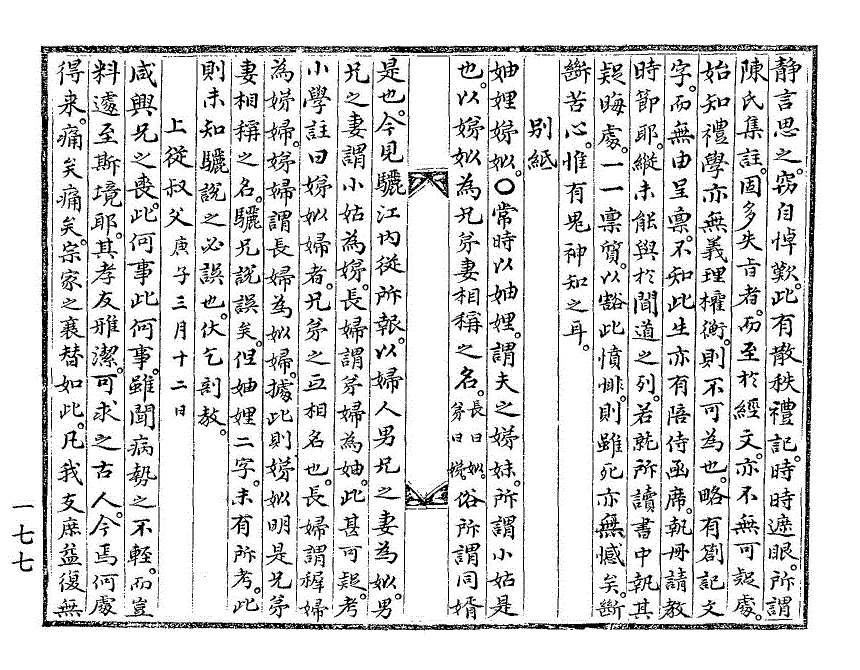 静言思之。窃自悼歎。此有散秩禮記。時時遮眼。所謂
陳氏集註。固多失旨者。而至於經文。亦不無可疑處。
始知禮學亦無義理權衡。則不可為也。略有箚記文
字。而無由呈稟。不知此生亦有陪侍函席。執冊請教
時節耶。縱未能與於聞道之列。若就所讀書中執其
疑晦處。一一稟質。以豁此憤悱。則雖死亦無憾矣。斷
斷苦心。惟有鬼神知之耳。
別紙
妯娌娣姒。○常時以妯娌。謂夫之娣妹。所謂小姑是
也。以娣姒為兄弟妻相稱之名。長曰姒。弟曰娣。俗所謂同婿
是也。今見驪江內從所報。以婦人男兄之妻為姒。男
兄之妻謂小姑為娣。長婦謂弟婦為妯。此甚可疑。考
小學註曰娣姒婦者。兄弟之互相名也。長婦謂稺婦
為娣婦。娣婦謂長婦為姒婦。據此則娣姒明是兄弟
妻相稱之名。驪兄說誤矣。但妯娌二字。未有所考。此
則未知驪說之必誤也。伏乞剖教。
上從叔父庚子三月十二日
咸興兄之喪。此何事此何事。雖聞病勢之不輕。而豈
料遽至斯境耶。其孝友雅潔。可求之古人。今焉何處
得來。痛矣痛矣。宗家之衰替如此。凡我支庶益復無
一七七